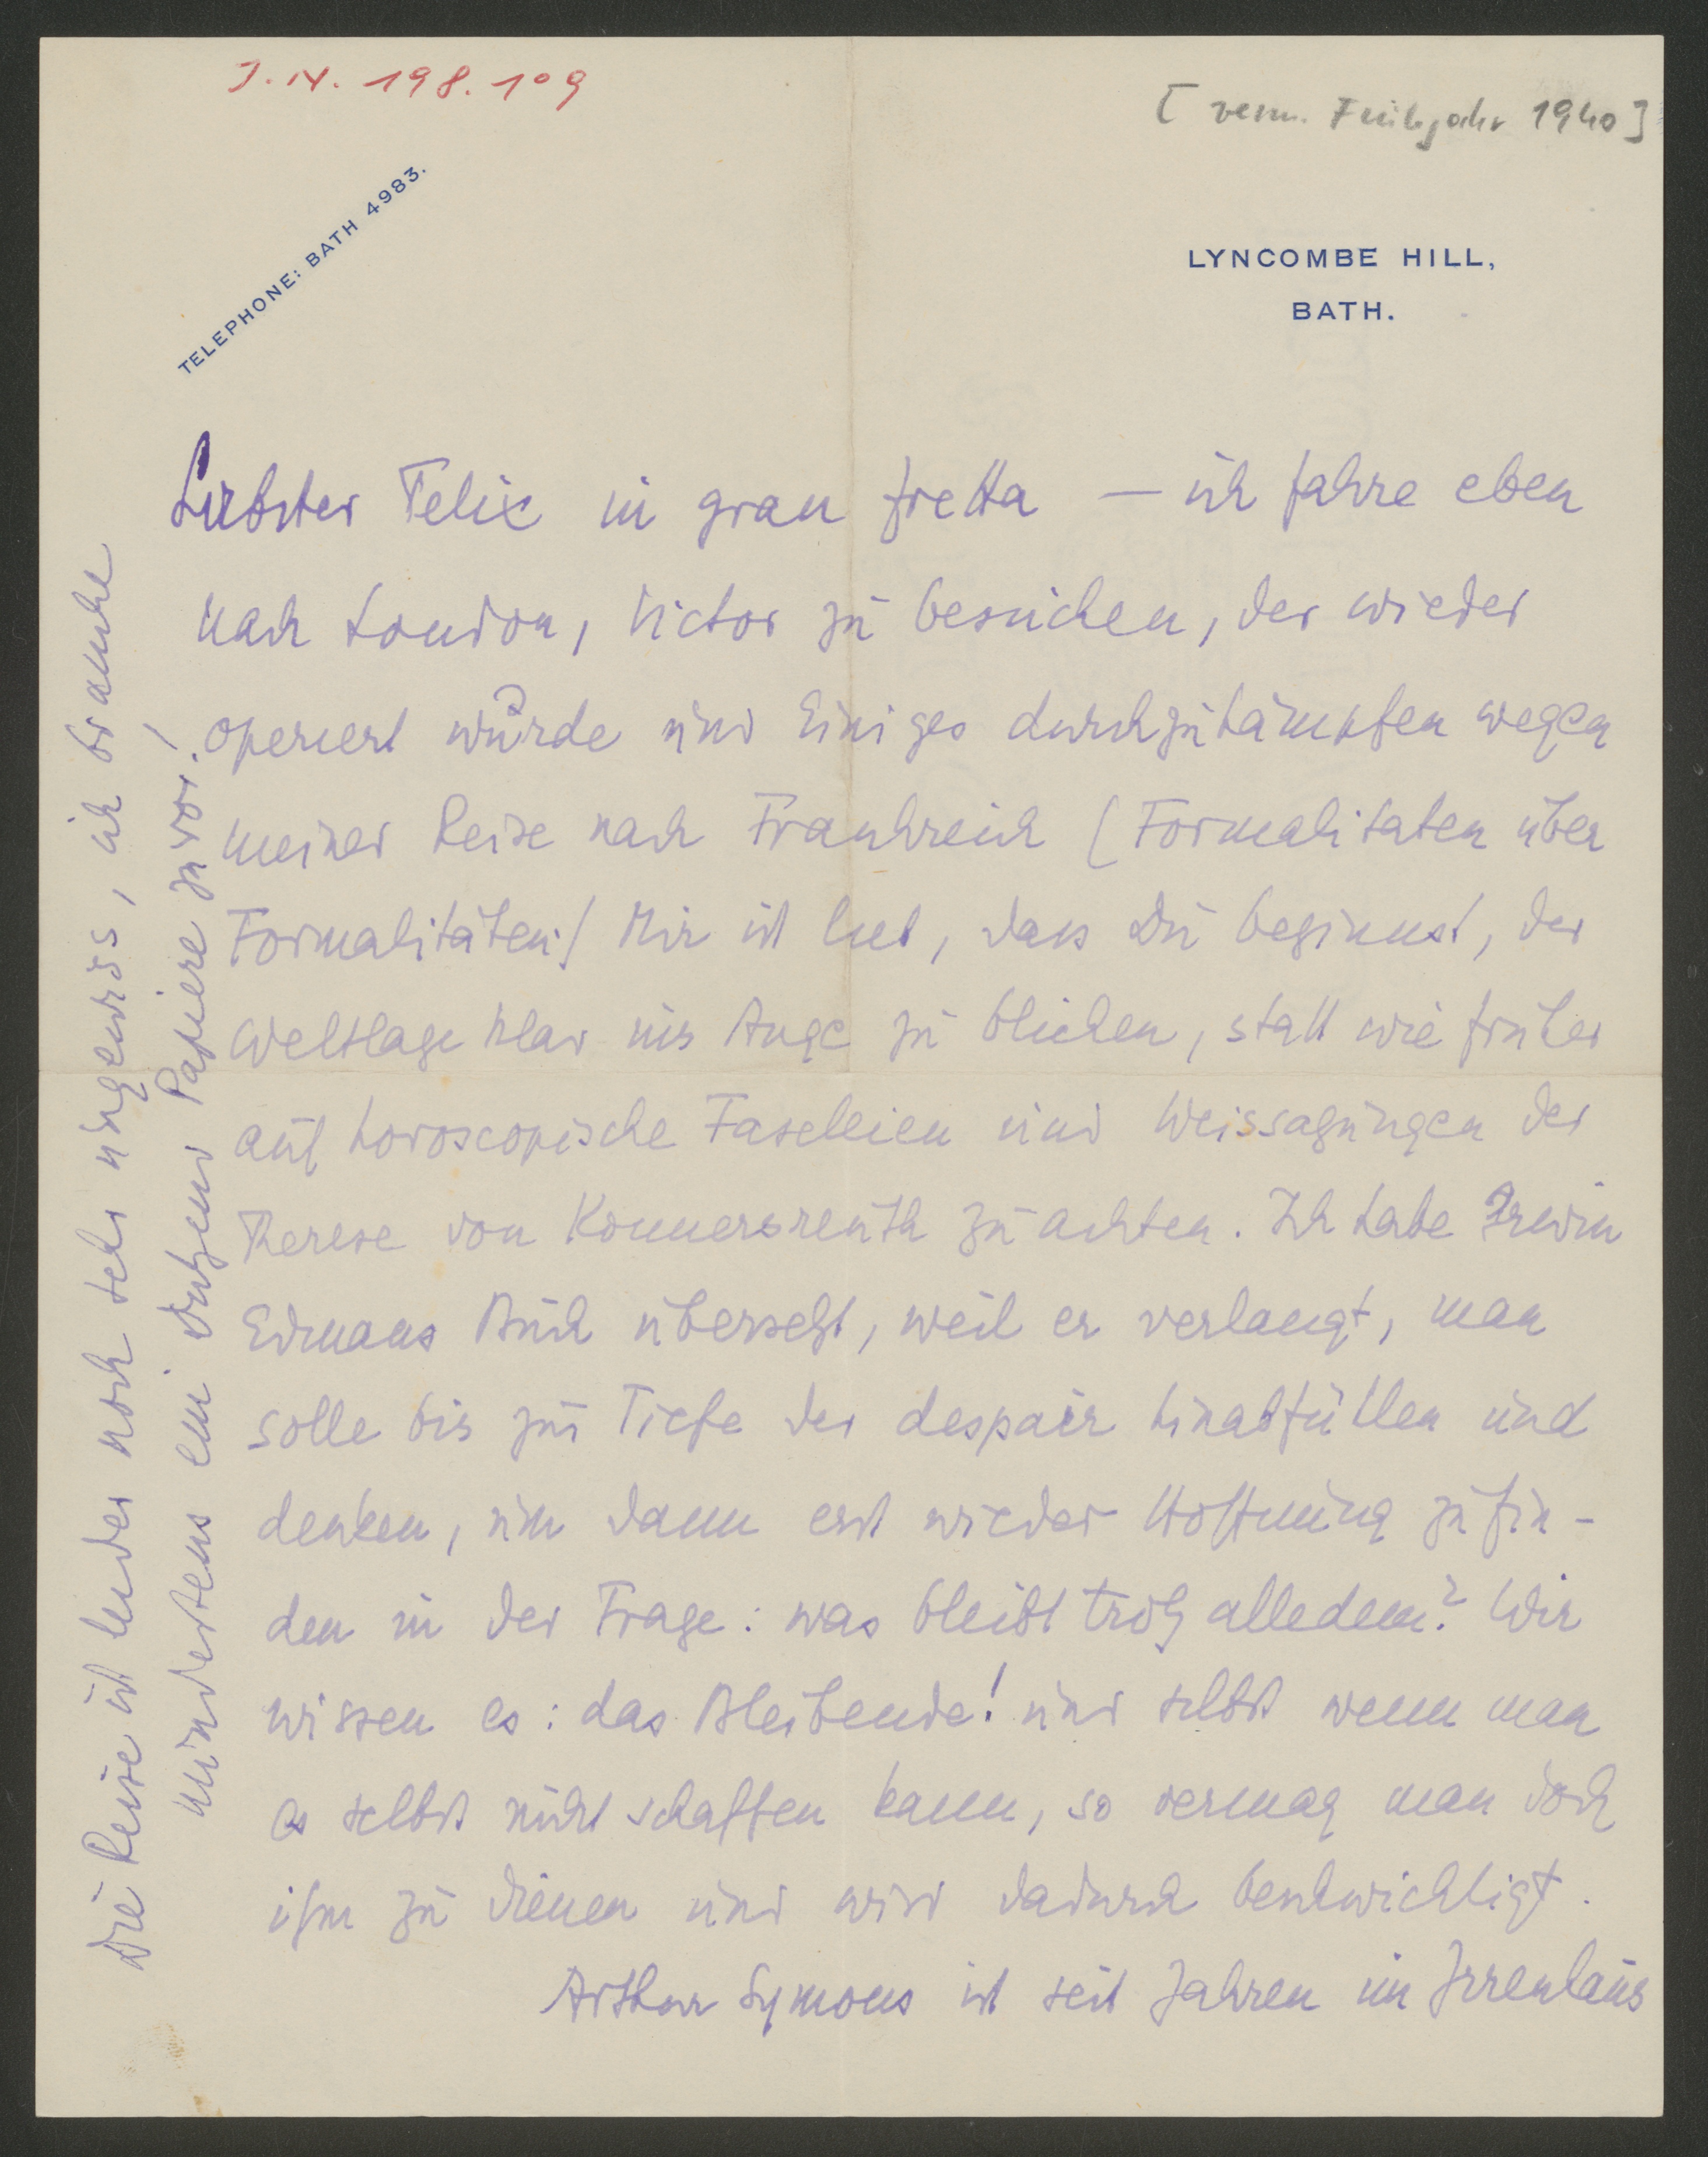 J.N. 198.109
[verm. Frühjahr 1940]
TELEPHONE: BATH 4983.
LYNCOMBE HILL,
BATH.
Liebster Felix in gran fretta — ich fahre eben
nach London, Victor zu besuchen, der wieder
operiert wurde und Einiges durchzukämpfen wegen
meiner Reise nach Frankreich (Formalitaten über
Formalitäten.) Mir ist lieb, dass Du beginnst, der
Weltlage klar ins Auge zu blicken, statt wie früher
auf horoscopische Faseleien und Weissagungen der
Therese von Konnersreuth zu achten. Ich habe Irwin
Edmans Buch übersetzt, weil er verlangt, man
solle bis zur Tiefe der despair hinabfühlen und
denken, um dann erst wieder Hoffnung zu fin-
den in der Frage: was bleibt trotz alledem? Wir
wissen es: das Bleibende! und selbst wenn man
es selbst nicht schaffen kann, so vermag man doch
ihm zu dienen und wird dadurch beschwichtigt.
Arthur Symons ist seit Jahren im Irrenhaus
Die Reise ist leider noch sehr ungewiss, ich brauche
mindestens ein Dutzend Papiere zuvor!